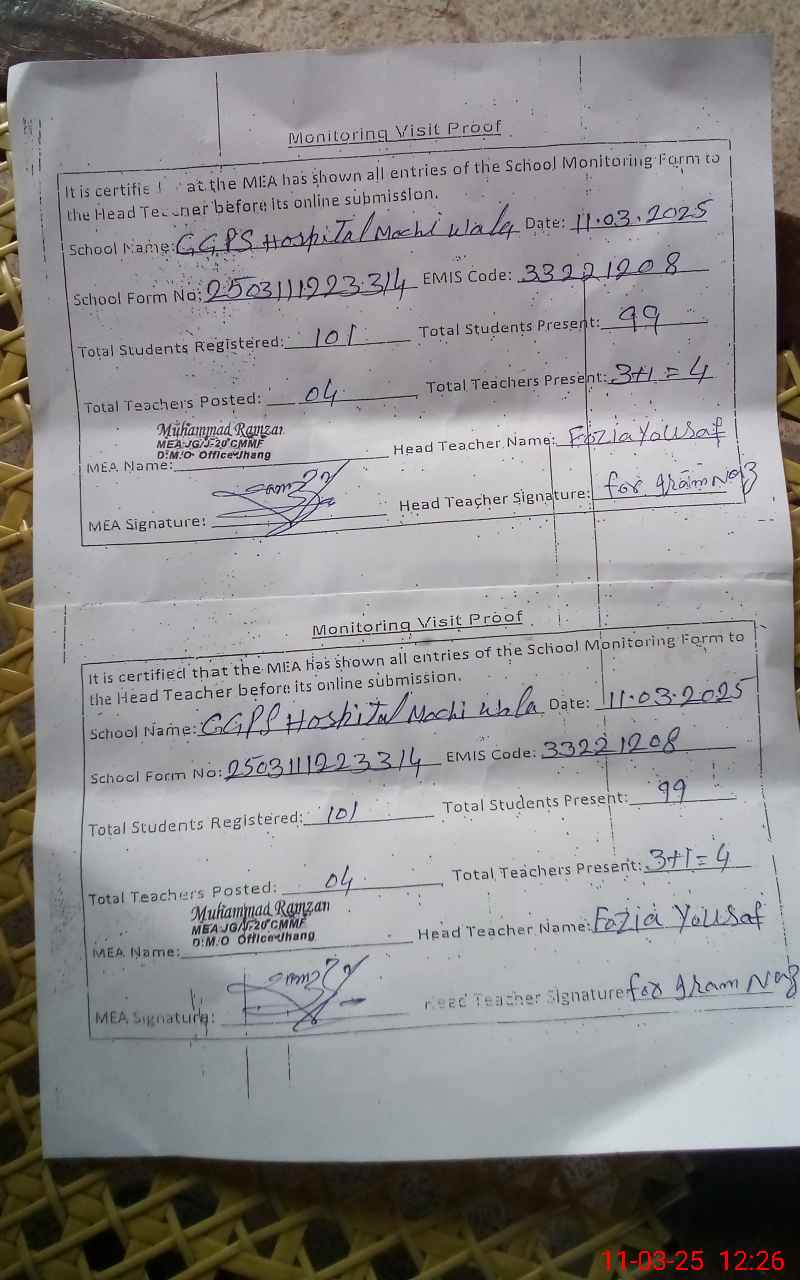 Monitoring Visit Proof
It is certifie at the MEA has shown all entries of the School Monitoring Form to
the Head Teacher before its online submission.
School Name: GGPS Hospital Mochi Wala Date: 11.03.2025
School Form No: 2503111223314 EMIS Code: 33221208
Total Students Registered: 101 Total Students Present: 99
Total Teachers Posted: 04 Total Teachers Present: 3+1=4
Muhammad Ramzan
MEA-JG/J-20 CMMF
D.M.O Office Jhang
MEA Name: Head Teacher Name: Fozia Yousaf
MEA Signature: Head Teacher Signature: for Iram Naz
Monitoring Visit Proof
It is certified that the MEA has shown all entries of the School Monitoring Form to
the Head Teacher before its online submission.
School Name: GGPS Hospital Mochi Wala Date: 11.03.2025
School Form No: 2503111223314 EMIS Code: 33221208
Total Students Registered: 101 Total Students Present: 99
Total Teachers Posted: 04 Total Teachers Present: 3+1=4
Muhammad Ramzan
MEA-JG/J-20 CMMF
D.M.O Office Jhang
MEA Name: Head Teacher Name: Fozia Yousaf
MEA Signature: Head Teacher Signature: for Iram Naz
11-03-25 12:26